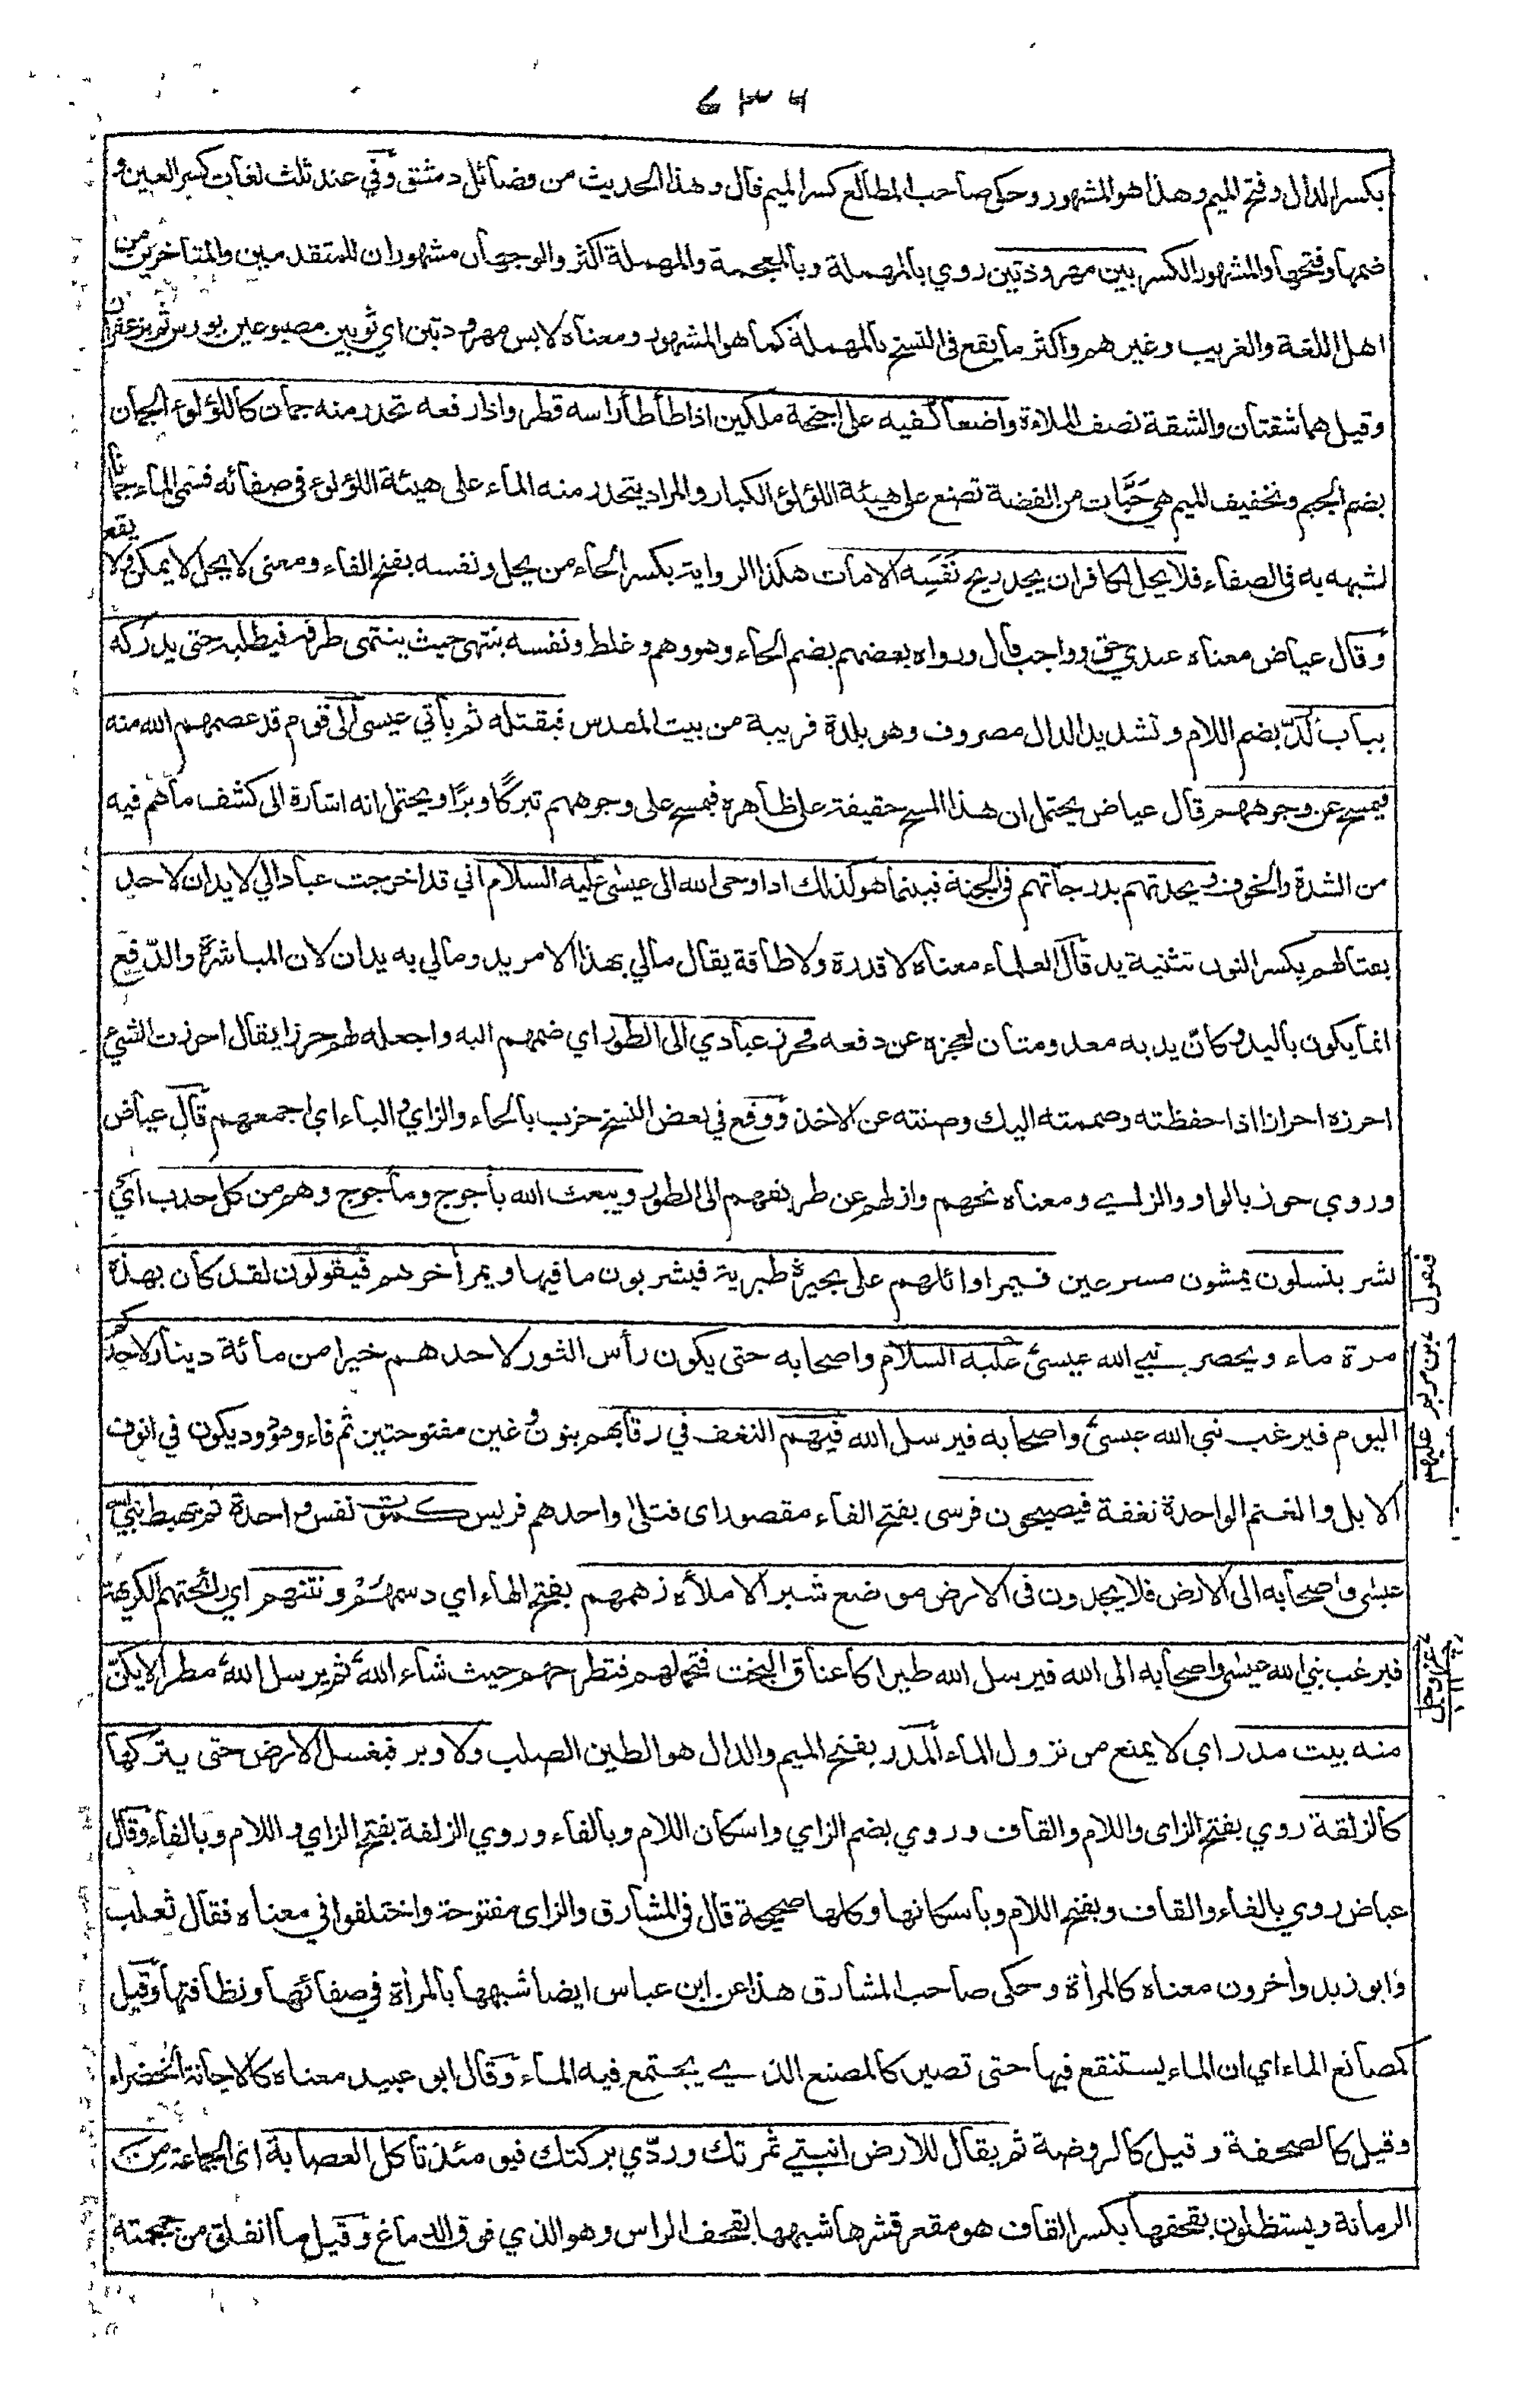 ٦٣٦
بكسر الدال وفتح الميم وهذا هو المشهور وحكى صاحب المطالع كسر الميم قال وهذا الحديث من فضائل دمشق وفي عند ثلث لغات كسر العين و
ضمها وفتحها والمشهور الكسر بين مهروذتين روي بالمهملة وبالمعجمة والمهملة اكثر والوجهان مشهوران للمتقدمين والمتأخرين من
اهل اللغة والغريب وغيرهم واكثر ما يقع في النسخ بالمهملة كما هو المشهور ومعناه لابس مهرودتين اي ثوبين مصبوغين بورس ثم بزعفران
وقيل هما شقتان والشقة نصف الملاءة واضعا كفيه على اجنحة ملكين اذا طأطأ راسه قطر واذا رفعه تحدر منه جمان كاللؤلوء الجمان
بضم الجيم وتخفيف الميم هي حَبَّات من الفضة تصنع على هيئة اللؤلؤ الكبار والمراد يتحدر منه الماء على هيئة اللؤلوء في صفائه فسمى الماء جمانا
لشبهه به في الصفاء فلا يحل لكافر ان يجد ريح نَفَسِه الا مات هكذا الرواية بكسر الحاء من يحل ونفسه بفتح الفاء ومعنى لا يحل لا يمكن ولا يقع
وقال عياض معناه عندي حق وواجب قال ورواه بعضهم بضم الحاء وهو وهم وغلط ونفسه ينتهي حيث ينتهى طرفه فيطلبه حتى يدركه
بباب لُدّ بضم اللام وتشديد الدال مصروف وهو بلدة قريبة من بيت المقدس فيقتله ثم يأتي عيسى الى قوم قد عصمهم الله منه
فيمسح عن وجوههم قال عياض يحتمل ان هذا المسح حقيقة على ظاهره فيمسح على وجوههم تبركًا وبرًا ويحتمل انه اشارة الى كشف ما هم فيه
من الشدة والخوف ويحدثهم بدرجاتهم في الجنة فبينما هو كذلك اذ اوحى الله الى عيسى عليه السلام اني قد اخرجت عبادا لي لا يدان لاحد
بقتالهم بكسر النون تثنية يد قال العلماء معناه لا قدرة ولا طاقة يقال مالي بهذا الامر يد ومالي به يدان لان المباشرة والدّفع
انما يكون باليد وكانّ يديه معدومتان لعجزه عن دفعه فحرز عبادي الى الطور اي ضمهم اليه واجعله لهم حرزا يقال احرزت الشيء
احرزه احرازا اذا حفظته وضممته اليك وصنته عن الاخذ ووقع في بعض النسخ حزب بالحاء والزاي والباء اي اجمعهم قال عياض
وروي حوز بالواو والزاي ومعناه نحهم وازلهم عن طريقهم الى الطور ويبعث الله ياجوج وماجوج وهم من كل حدب اي
نشر ينسلون يمشون مسرعين فيمر اوائلهم على بحيرة طبرية فيشربون ما فيها ويمر آخرهم فيقولون لقد كان بهذه
مرة ماء ويحصر نبي الله عيسى عليه السلام واصحابه حتى يكون رأس الثور لاحدهم خيرا من مائة دينار لاحدكم
اليوم فيرغب نبي الله عيسى واصحابه فيرسل الله فيهم النغف في رقابهم بنون وغين مفتوحتين ثم فاء وهو دود يكون في انوف
الابل والغنم الواحدة نغفة فيصبحون فرسى بفتح الفاء مقصور اى قتلى واحدهم فريس كموت نفس واحدة ثم يهبط نبي الله
عيسى واصحابه الى الارض فلا يجدون في الارض موضع شبر الا ملأه زهمهم بفتح الهاء اي دسمهم ونتنهم اي رائحتهم الكريهة
فيرغب نبي الله عيسى واصحابه الى الله فيرسل الله طيرا كاعناق البخت فتحملهم فتطرحهم حيث شاء الله ثم يرسل الله مطرا لا يكنّ
منه بيت مدر اي لا يمنع من نزول الماء المدر بفتح الميم والدال هو الطين الصلب ولا وبر فيغسل الارض حتى يتركها
كالزلقة روي بفتح الزاى واللام والقاف وروي بضم الزاي واسكان اللام وبالفاء وروي الزلفة بفتح الزاي واللام وبالفاء وقال
عياض روي بالفاء والقاف وبفتح اللام وباسكانها وكلها صحيحة قال في المشارق والزاى مفتوحة واختلفوا في معناه فقال ثعلب
وابو زيد وآخرون معناه كالمرأة وحكى صاحب المشارق هذا عن ابن عباس ايضا شبهها بالمرأة في صفائها ونظافتها وقيل
كمصانع الماء اي ان الماء يستنقع فيها حتى تصير كالمصنع الذي يجتمع فيه الماء وقال ابو عبيد معناه كالاجانة الخضراء
وقيل كالصحفة وقيل كالروضة ثم يقال للارض انبتي ثمرتك وردّي بركتك فيومئذ تأكل العصابة اى الجماعة من
الرمانة ويستظلون بقحفها بكسر القاف هو مقعر قشرها شبهها بقحف الراس وهو الذي فوق الدماغ وقيل ما انفلق من جمجمته
فيقول
عليهم
عز وجل